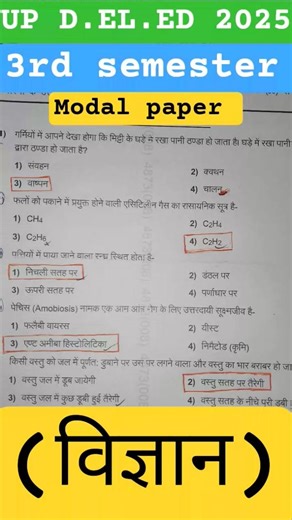 UP D.EL.ED 2025
3rd semester
Modal paper
गर्मियों में आपने देखा होगा कि मिट्टी के घड़े में रखा पानी ठण्डा हो जाता है। घड़े में रखा पानी
द्वारा ठण्डा हो जाता है?
1) संवहन
2) क्वथन
3) वाष्पन
4) चालन
फलों को पकाने में प्रयुक्त होने वाली एसिटिलीन गैस का रासायनिक सूत्र है-
1) CH4
2) C2H4
3) C2H6
4) C2H2
पत्तियों में पाया जाने वाला रन्ध्र स्थित होता है-
1) निचली सतह पर
2) डंठल पर
3) ऊपरी सतह पर
4) पर्णाधार पर
पेचिस (Amobiosis) नामक एक आम आंत रोग के लिए उत्तरदायी सूक्ष्मजीव है-
1) फ्लैबी वायरस
2) यीस्ट
3) एण्ट अमीबा हिस्टोलिटिका
4) निमेटोड (कृमि)
किसी वस्तु को जल में पूर्णतः डुबाने पर उस पर लगने वाला और वस्तु का भार बराबर हो जा
1) वस्तु जल में डूब जायेगी
2) वस्तु सतह पर तैरेगी
3) वस्तु जल में कुछ डूबी हुई तैरेगी
4) वस्तु सतह के नीचे परी डबी
(विज्ञान)